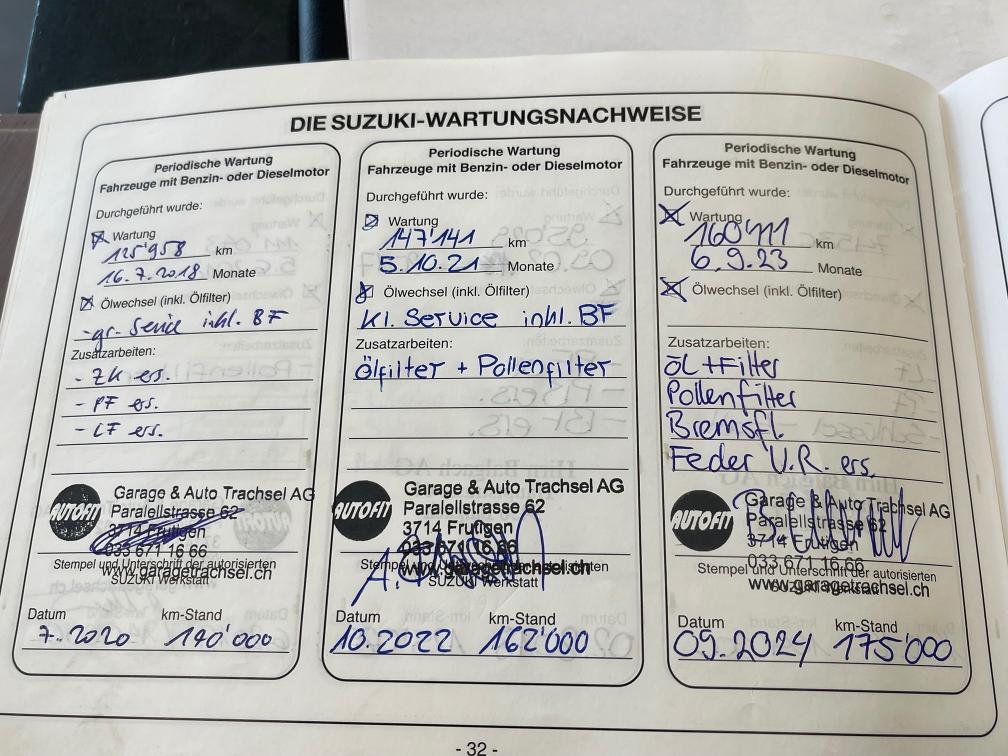 DIE SUZUKI-WARTUNGSNACHWEISE
Periodische Wartung
Fahrzeuge mit Benzin- oder Dieselmotor
Durchgeführt wurde:
Wartung
125'958 km
16.7.2018 Monate
Ölwechsel (inkl. Ölfilter)
- gr. Service inkl. BF
Zusatzarbeiten:
- ZK ers.
- PF ers.
- LF ers.
AUTOFIT
Garage & Auto Trachsel AG
Paralellstrasse 62
3714 Frutigen
033 671 16 66
Stempel und Unterschrift der autorisierten
www.garagetrachsel.ch
SUZUKI Werkstatt
Datum km-Stand
7.2020 140'000
Periodische Wartung
Fahrzeuge mit Benzin- oder Dieselmotor
Durchgeführt wurde:
Wartung
147'141 km
5.10.21 Monate
Ölwechsel (inkl. Ölfilter)
Kl. Service inkl. BF
Zusatzarbeiten:
Ölfilter + Pollenfilter
AUTOFIT
Garage & Auto Trachsel AG
Paralellstrasse 62
3714 Frutigen
033 671 16 66
Stempel und Unterschrift der autorisierten
www.garagetrachsel.ch
SUZUKI Werkstatt
Datum km-Stand
10.2022 162'000
Periodische Wartung
Fahrzeuge mit Benzin- oder Dieselmotor
Durchgeführt wurde:
Wartung
160'111 km
6.9.23 Monate
Ölwechsel (inkl. Ölfilter)
Zusatzarbeiten:
ÖL + Filter
Pollenfilter
Bremsfl.
Feder V.R. ers.
AUTOFIT
Garage & Auto Trachsel AG
Paralellstrasse 62
3714 Frutigen
033 671 16 66
Stempel und Unterschrift der autorisierten
SUZUKI Werkstatt
www.garagetrachsel.ch
Datum km-Stand
09.2024 175'000
- 32 -